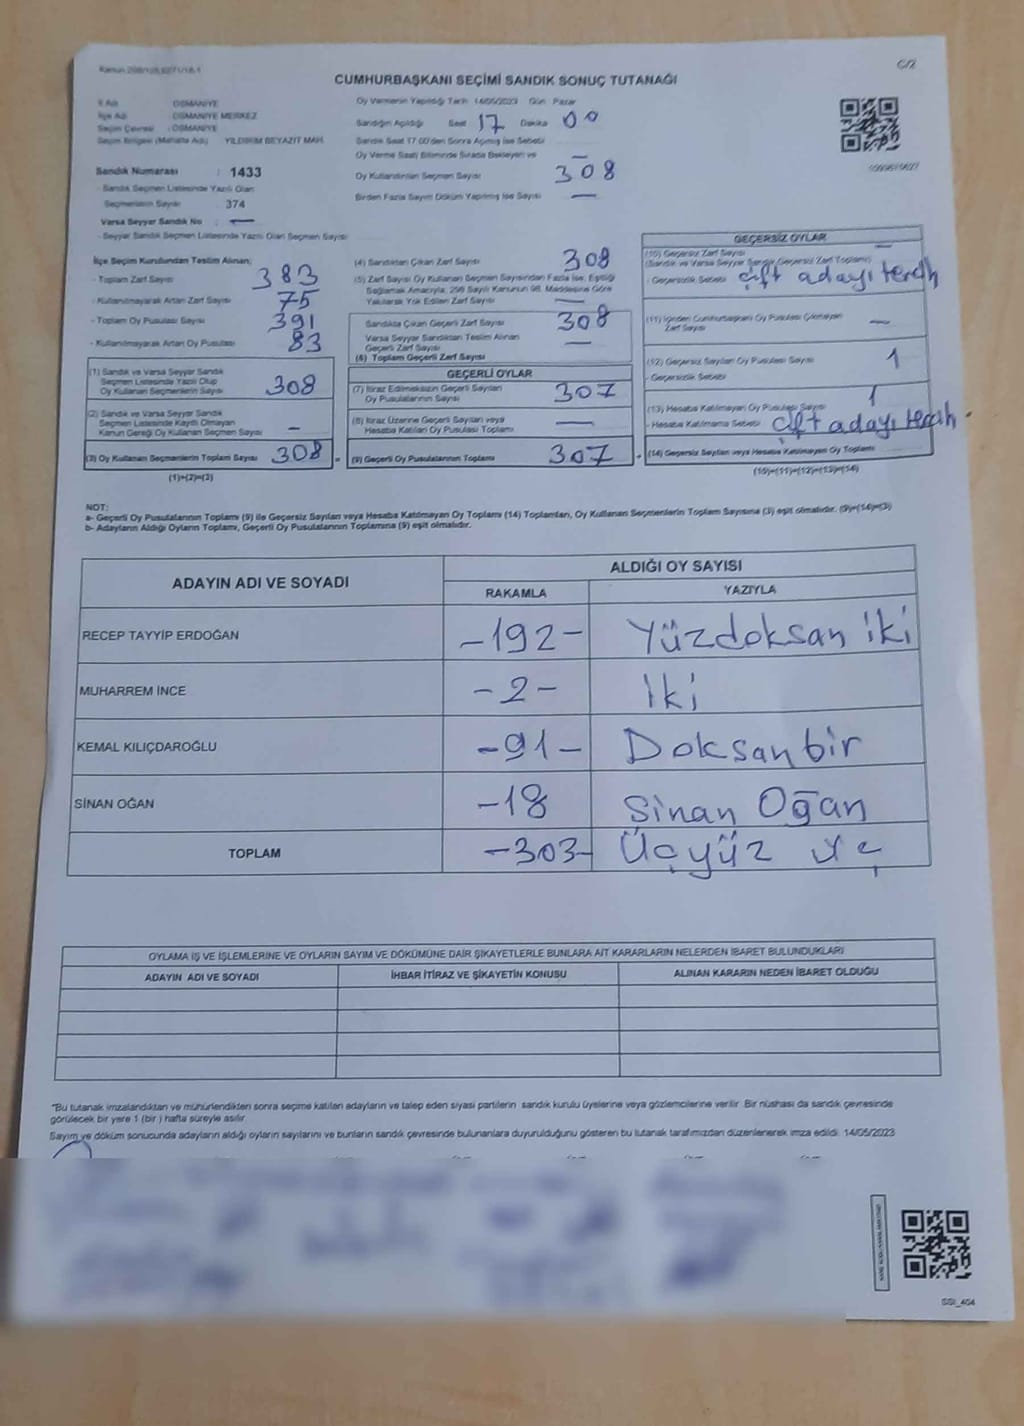 Kanun 298/105,6271/18-1
C/2
CUMHURBAŞKANI SEÇİMİ SANDIK SONUÇ TUTANAĞI
İl Adı : OSMANİYE
İlçe Adı : OSMANİYE MERKEZ
Seçim Çevresi : OSMANİYE
Seçim Bölgesi (Mahalle Adı) YILDIRIM BEYAZIT MAH.
Sandık Numarası : 1433
- Sandık Seçmen Listesinde Yazılı Olan
Seçmenlerin Sayısı 374
Varsa Seyyar Sandık No : —
- Seyyar Sandık Seçmen Listesinde Yazılı Olan Seçmen Sayısı:
Oy Vermenin Yapıldığı Tarih 14/05/2023 Gün Pazar
Sandığın Açıldığı Saat 17 Dakika 00
Sandık Saat 17.00'den Sonra Açılmış İse Sebebi
Oy Verme Saati Bitiminde Sırada Bekleyen ve —
Oy Kullandırılan Seçmen Sayısı 308
Birden Fazla Sayım Döküm Yapılmış İse Sayısı —
İlçe Seçim Kurulundan Teslim Alınan;
- Toplam Zarf Sayısı 383
- Kullanılmayarak Artan Zarf Sayısı 75
- Toplam Oy Pusulası Sayısı 391
- Kullanılmayarak Artan Oy Pusulası 83
(1) Sandık ve Varsa Seyyar Sandık
Seçmen Listesinde Yazılı Olup
Oy Kullanan Seçmenlerin Sayısı 308
(2) Sandık ve Varsa Seyyar Sandık
Seçmen Listesinde Kayıtlı Olmayan
Kanun Gereği Oy Kullanan Seçmen Sayısı –
(3) Oy Kullanan Seçmenlerin Toplam Sayısı 308
(1)+(2)=(3)
(4) Sandıktan Çıkan Zarf Sayısı 308
(5) Zarf Sayısı Oy Kullanan Seçmen Sayısından Fazla İse; Eşitliği
Sağlamak Amacıyla; 298 Sayılı Kanunun 98. Maddesine Göre
Yakılarak Yok Edilen Zarf Sayısı —
Sandıkta Çıkan Geçerli Zarf Sayısı 308
Varsa Seyyar Sandıktan Teslim Alınan
Geçerli Zarf Sayısı —
(6) Toplam Geçerli Zarf Sayısı
GEÇERLİ OYLAR
(7) İtiraz Edilmeksizin Geçerli Sayılan
Oy Pusulalarının Sayısı 307
(8) İtiraz Üzerine Geçerli Sayılan veya
Hesaba Katılan Oy Pusulası Toplamı —
= (9) Geçerli Oy Pusulalarının Toplamı 307
GEÇERSİZ OYLAR
(10) Geçersiz Zarf Sayısı —
(Sandık ve Varsa Seyyar Sandık Geçersiz Zarf Toplamı)
- Geçersizlik Sebebi çift adayı tercih
(11) İçinden Cumhurbaşkanı Oy Pusulası Çıkmayan
Zarf Sayısı —
(12) Geçersiz Sayılan Oy Pusulası Sayısı 1
- Geçersizlik Sebebi
(13) Hesaba Katılmayan Oy Pusulası Sayısı 1
- Hesaba Katılmama Sebebi çift adayı tercih.
+ (14) Geçersiz Sayılan veya Hesaba Katılmayan Oy Toplamı
(10)+(11)+(12)+(13)=(14)
NOT:
a- Geçerli Oy Pusulalarının Toplamı (9) ile Geçersiz Sayılan veya Hesaba Katılmayan Oy Toplamı (14) Toplamları, Oy Kullanan Seçmenlerin Toplam Sayısına (3) eşit olmalıdır. (9)+(14)=(3)
b- Adayların Aldığı Oyların Toplamı, Geçerli Oy Pusulalarının Toplamına (9) eşit olmalıdır.
ADAYIN ADI VE SOYADI
ALDIĞI OY SAYISI
RAKAMLA YAZIYLA
RECEP TAYYİP ERDOĞAN -192- Yüzdoksan iki
MUHARREM İNCE -2- İki
KEMAL KILIÇDAROĞLU -91- Doksanbir
SİNAN OĞAN -18 Sinan Oğan
TOPLAM -303- Üçyüz üç
OYLAMA İŞ VE İŞLEMLERİNE VE OYLARIN SAYIM VE DÖKÜMÜNE DAİR ŞİKAYETLERLE BUNLARA AİT KARARLARIN NELERDEN İBARET BULUNDUKLARI
ADAYIN ADI VE SOYADI İHBAR İTİRAZ VE ŞİKAYETİN KONUSU ALINAN KARARIN NEDEN İBARET OLDUĞU
"Bu tutanak imzalandıktan ve mühürlendikten sonra seçime katılan adayların ve talep eden siyasi partilerin sandık kurulu üyelerine veya gözlemcilerine verilir. Bir nüshası da sandık çevresinde
görülecek bir yere 1 (bir ) hafta süreyle asılır.
Sayım ve döküm sonucunda adayların aldığı oyların sayılarını ve bunların sandık çevresinde bulunanlara duyurulduğunu gösteren bu tutanak tarafımızdan düzenlenerek imza edildi. 14/05/2023
SSI_404